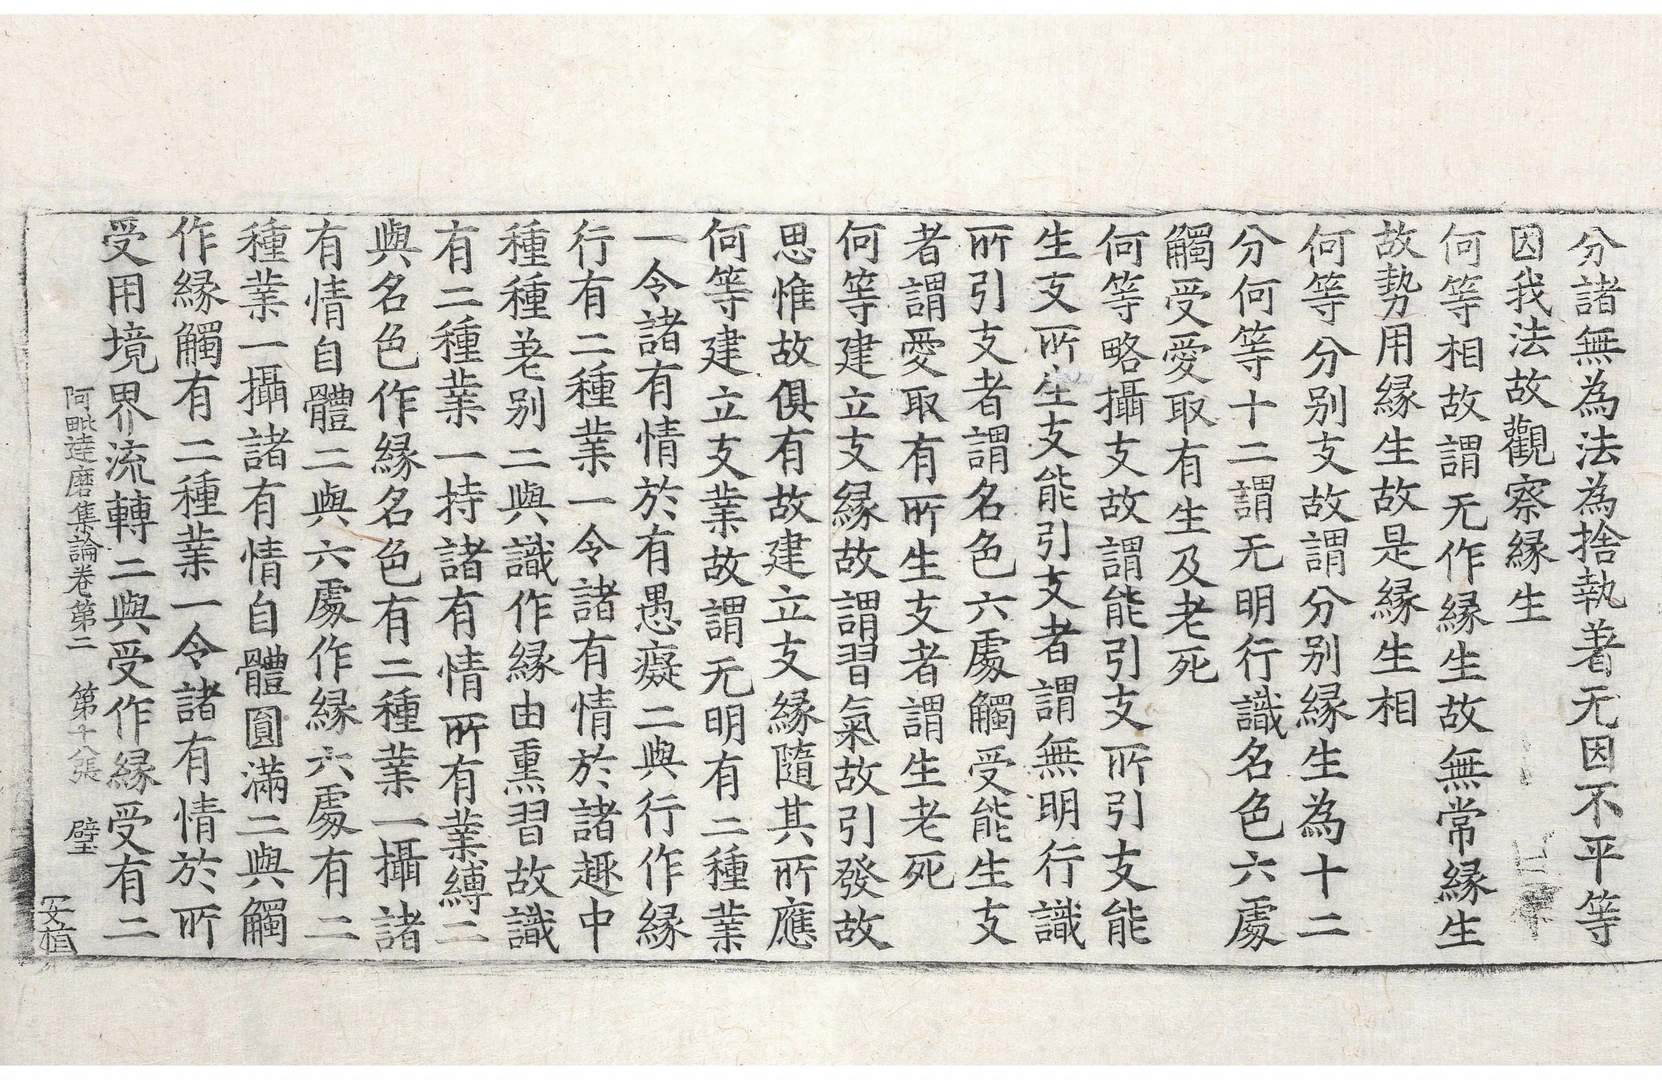 分諸無為法為捨執著无因不平等
因我法故觀察縁生
何等相故謂无作縁生故無常縁生
故勢用縁生故是縁生相
何等分别支故謂分别縁生為十二
分何等十二謂无明行識名色六處
觸受愛取有生及老死
何等略攝支故謂能引支所引支能
生支所生支能引支者謂無明行識
所引支者謂名色六處觸受能生支
者謂愛取有所生支者謂生老死
何等建立支縁故謂習氣故引發故
思惟故俱有故建立支縁隨其所應
何等建立支業故謂无明有二種業
一令諸有情於有愚癡二與行作縁
行有二種業一令諸有情於諸趣中
種種差别二與識作縁由熏習故識
有二種業一持諸有情所有業縛二
與名色作縁名色有二種業一攝諸
有情自體二與六處作縁六處有二
種業一攝諸有情自體圓滿二與觸
作縁觸有二種業一令諸有情於所
受用境界流轉二與受作縁受有二
阿毗達磨集論卷第二 第十八張 璧